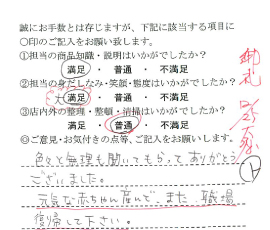 誠にお手数とは存じますが、下記に該当する項目に
○印のご記入をお願い致します。
①担当の商品知識・説明はいかがでしたか？
満足 ・ 普通 ・ 不満足
②担当の身だしなみ・笑顔・態度はいかがでしたか？
満足 ・ 普通 ・ 不満足
③店内外の整理・整頓・清掃はいかがでしたか？
満足 ・ 普通 ・ 不満足
◎ご意見・お気付きの点等、ご記入をお願いします。
色々と無理も聞いてもらってありがとう
ございました。
元気な赤ちゃん産んで、また、職場
復帰して下さい。